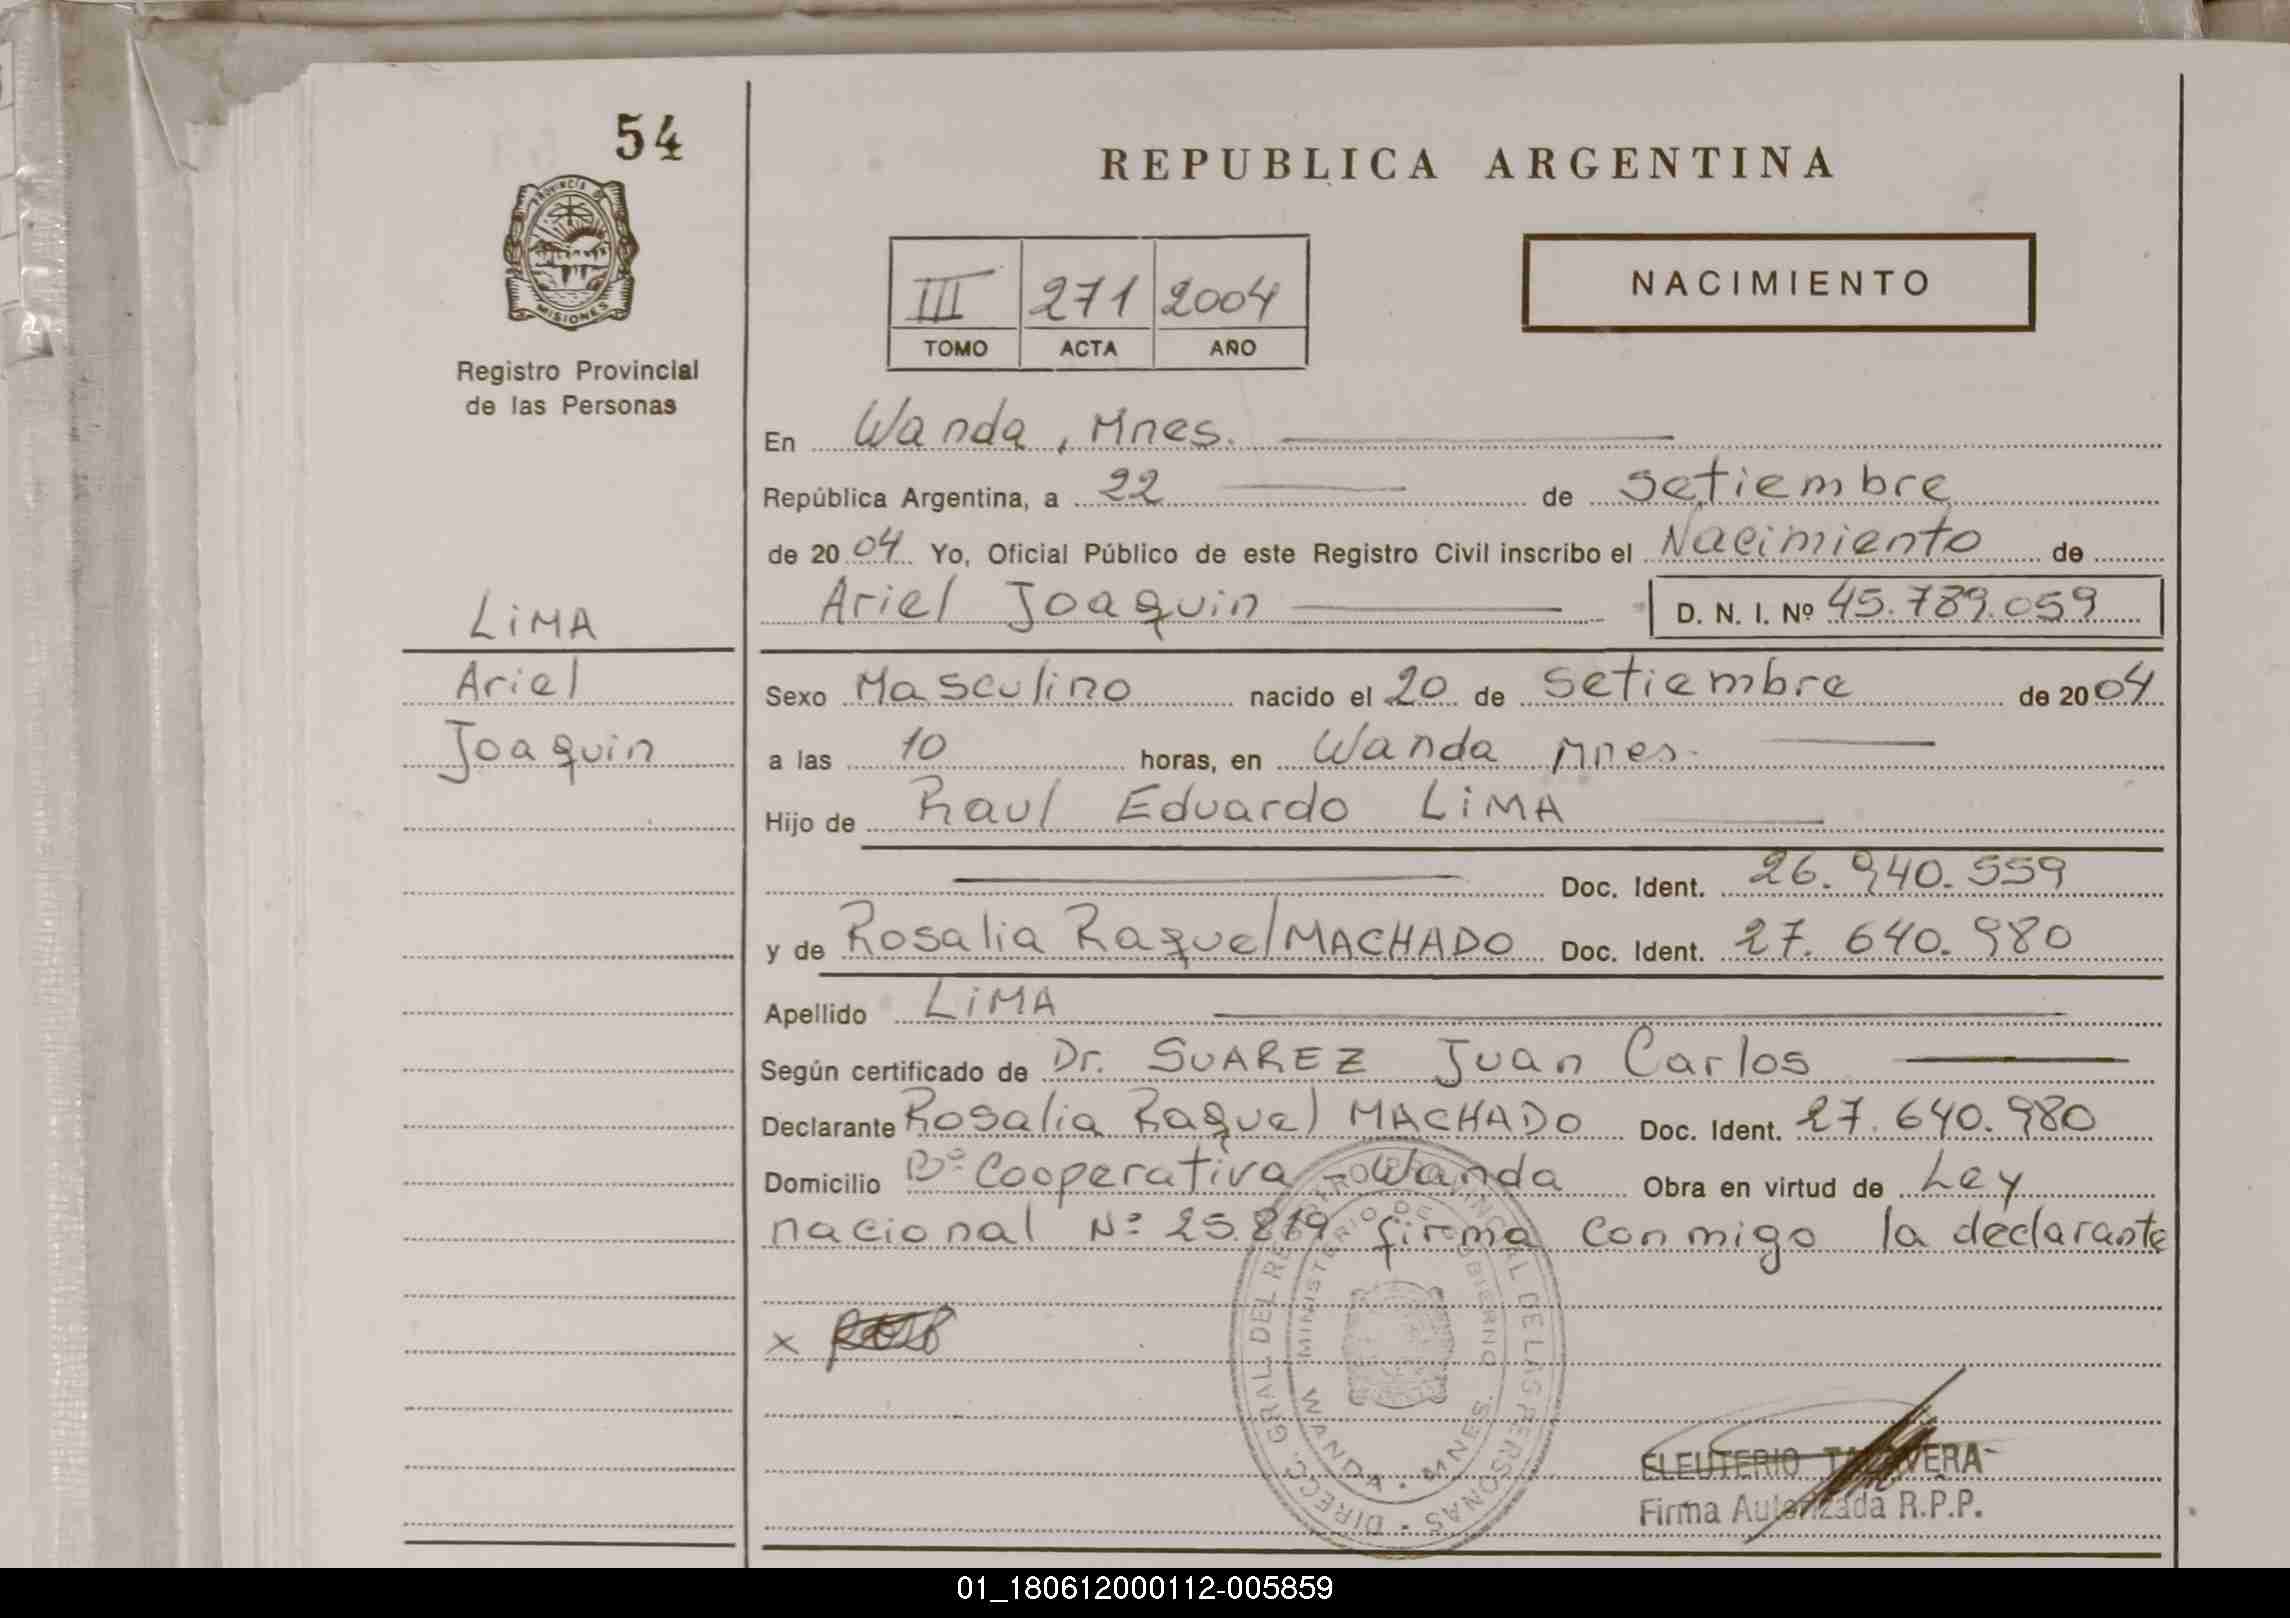 54
REPUBLICA ARGENTINA
PROVINCIA DE
MISIONES
Registro Provincial
de las Personas
NACIMIENTO
III 271 2004
TOMO ACTA AÑO
En Wanda, Mnes.
República Argentina, a 22 de Setiembre
de 2004 Yo, Oficial Público de este Registro Civil inscribo el Nacimiento de
Ariel Joaquin D. N. I. Nº 45.789.059
LiMA
Ariel
Joaquin
Sexo Masculino nacido el 20 de Setiembre de 2004
a las 10 horas, en Wanda Mnes.
Hijo de Raul Eduardo LiMA
Doc. Ident. 26.940.559
y de Rosalia Raquel MACHADO Doc. Ident. 27.640.980
Apellido LiMA
Según certificado de Dr. SUAREZ Juan Carlos
Declarante Rosalia Raquel MACHADO Doc. Ident. 27.640.980
Domicilio Bº Cooperativa Wanda Obra en virtud de Ley
nacional Nº 25.819 firma conmigo la declarante
x
DIRECC. GRAL. DEL REGISTRO PROVINCIAL DE LAS PERSONAS
MINISTERIO DE GOBIERNO
WANDA - MNES.
ELEUTERIO TALAVERA
Firma Autorizada R.P.P.
01_180612000112-005859